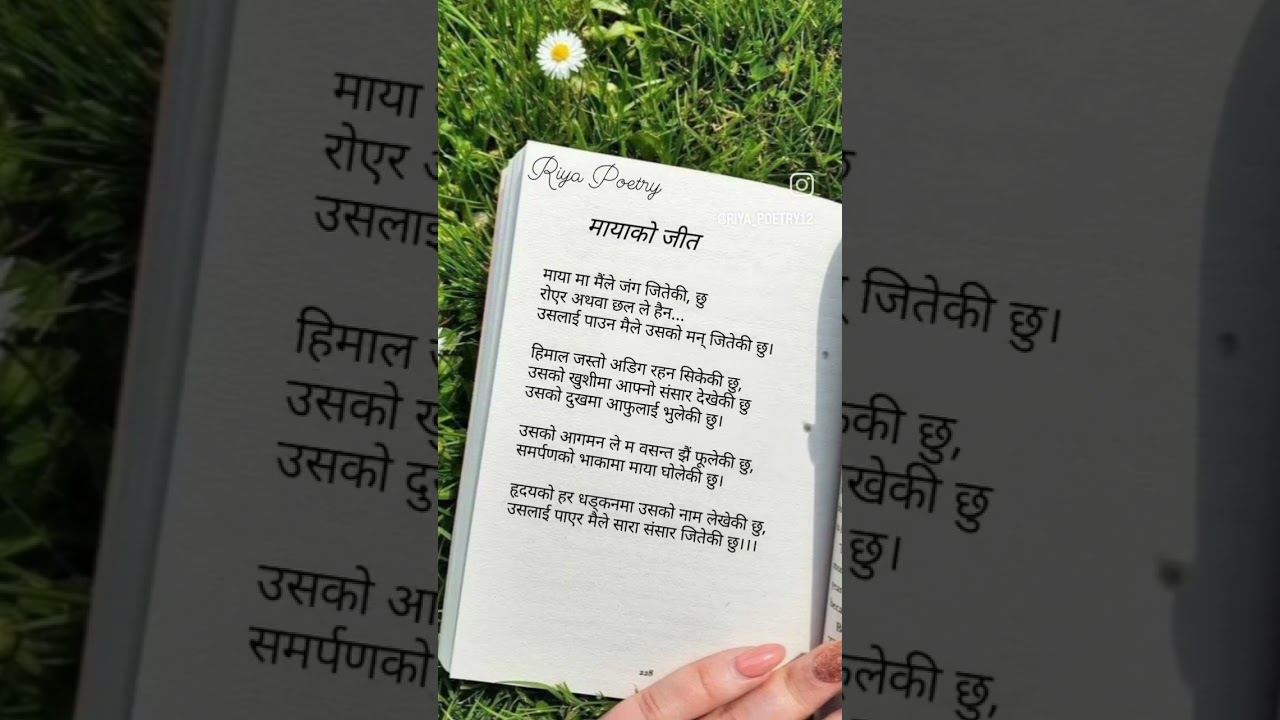 Riya Poetry
@RIYA_POETRY12
मायाको जीत
माया मा मैंले जंग जितेकी, छु
रोएर अथवा छल ले हैन...
उसलाई पाउन मैले उसको मन् जितेकी छु।
हिमाल जस्तो अडिग रहन सिकेकी छु,
उसको खुशीमा आफ्नो संसार देखेकी छु
उसको दुखमा आफुलाई भुलेकी छु।
उसको आगमन ले म वसन्त झैं फूलेकी छु,
समर्पणको भाकामा माया घोलेकी छु।
हृदयको हर धड्कनमा उसको नाम लेखेकी छु,
उसलाई पाएर मैले सारा संसार जितेकी छु।।।
228